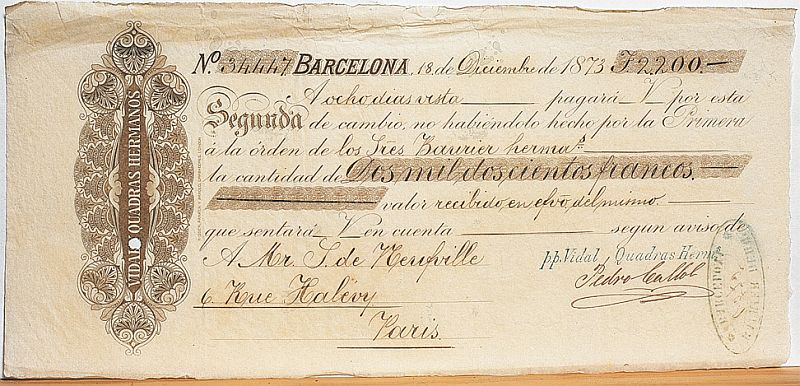 VIDAL QUADRAS HERMANOS
Nº 34447 BARCELONA, 18 de Diciembre de 1873 F 2.200.—
A ocho dias vista pagará V por esta
Segunda de cambio, no habiéndolo hecho por la Primera
á la órden de los Sres herms
la cantidad de Dos mil doscientos francos.
valor recibido en efvo del mismo
que sentará V en cuenta segun aviso de
A Mr. S. de Neufville pp. Vidal Quadras Herms
6 Rue Halévy Pedro Collol
Paris